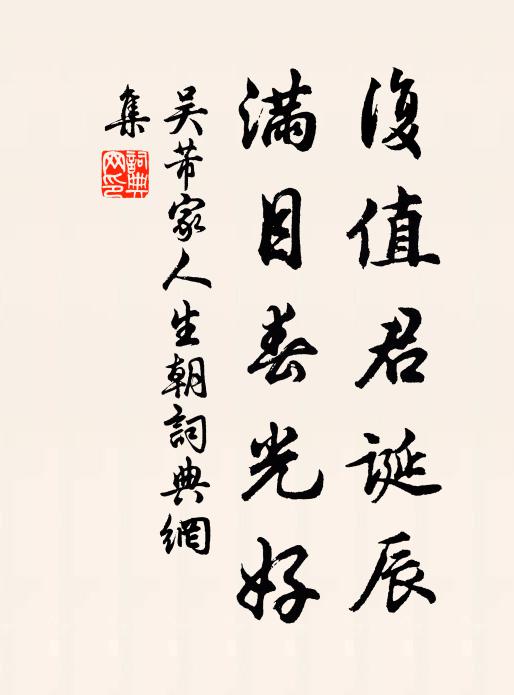 復值君誕辰
滿目春光好
吴芾家人生朝詞典網
集
詞典
网印